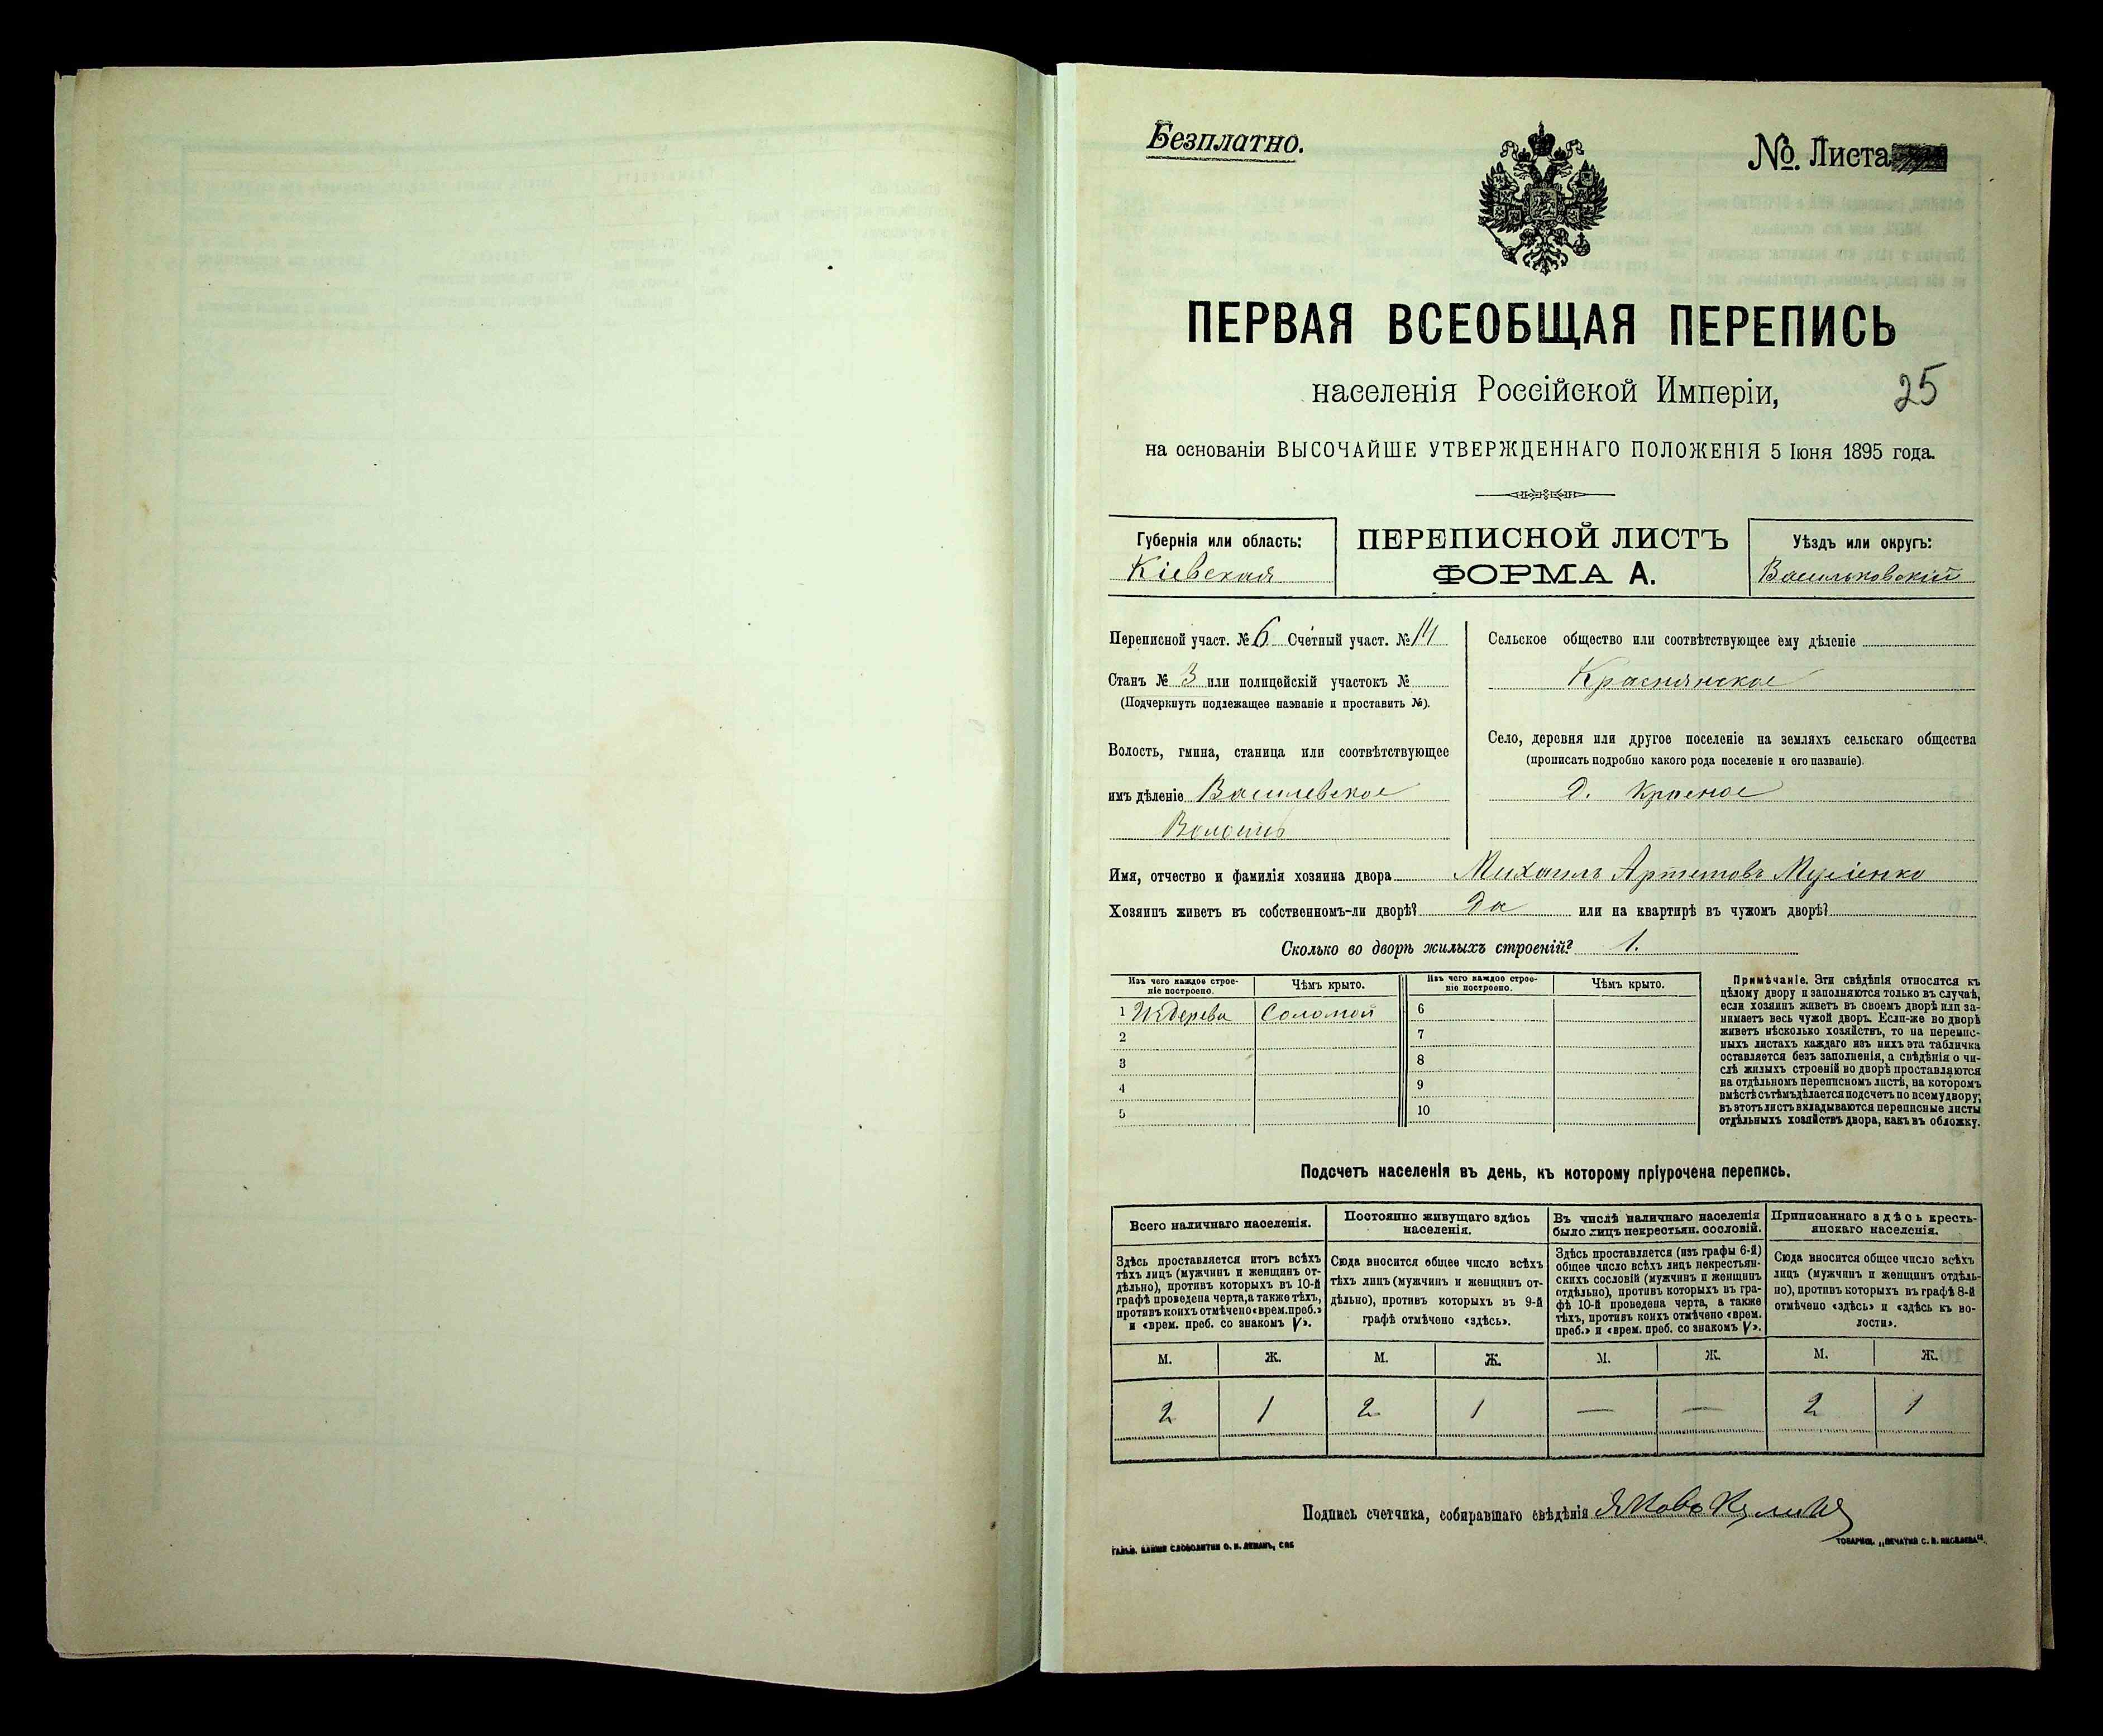 Безплатно.
№ Листа
ПЕРВАЯ ВСЕОБЩАЯ ПЕРЕПИСЬ
населенія Россійской Имперіи,
25
на основаніи ВЫСОЧАЙШЕ УТВЕРЖДЕННАГО ПОЛОЖЕНІЯ 5 Іюня 1895 года.
Губернія или область:
Кіевская
ПЕРЕПИСНОЙ ЛИСТЪ
ФОРМА А.
Уѣздъ или округъ:
Васильковскій
Переписной участ. № 6 Счетный участ. № 14
Станъ № 3 или полицейскій участокъ №
(Подчеркнуть подлежащее названіе и проставить №).
Волость, гмина, станица или соотвѣтствующее
имъ дѣленіе Василевское
Волость
Сельское общество или соотвѣтствующее ему дѣленіе
Краснянское
Село, деревня или другое поселеніе на земляхъ сельскаго общества
(прописать подробно какого рода поселеніе и его названіе).
д. Красное
Имя, отчество и фамилія хозяина двора Михаилъ Артемовъ
Хозяинъ живетъ въ собственномъ-ли дворѣ? Да или на квартирѣ въ чужомъ дворѣ?
Сколько во дворѣ жилыхъ строеній? 1.
Изъ чего каждое строе-
ніе построено.
Чѣмъ крыто.
Изъ чего каждое строе-
ніе построено.
Чѣмъ крыто.
1 Изъ дерева Соломой 6
2 7
3 8
4 9
5 10
Примѣчаніе. Эти свѣдѣнія относятся къ
цѣлому двору и заполняются только въ случаѣ,
если хозяинъ живетъ въ своемъ дворѣ или за-
нимаетъ весь чужой дворъ. Если-же во дворѣ
живетъ нѣсколько хозяйствъ, то на перепис-
ныхъ листахъ каждаго изъ нихъ эта табличка
оставляется безъ заполненія, а свѣдѣнія о чи-
слѣ жилыхъ строеній во дворѣ проставляются
на отдѣльномъ переписномъ листѣ, на которомъ
вмѣстѣ съ тѣмъ дѣлается подсчетъ по всему двору;
въ этотъ листъ вкладываются переписные листы
отдѣльныхъ хозяйствъ двора, какъ въ обложку.
Подсчетъ населенія въ день, къ которому пріурочена перепись.
Всего наличнаго населенія.
Постоянно живущаго здѣсь
населенія.
Въ числѣ наличнаго населенія
было лицъ некрестьян. сословій.
Приписаннаго здѣсь кресть-
янскаго населенія.
Здѣсь проставляется итогъ всѣхъ
тѣхъ лицъ (мужчинъ и женщинъ от-
дѣльно), противъ которыхъ въ 10-й
графѣ проведена черта, а также тѣхъ,
противъ коихъ отмѣчено «врем. преб.»
и «врем. преб. со знакомъ V».
Сюда вносится общее число всѣхъ
тѣхъ лицъ (мужчинъ и женщинъ от-
дѣльно), противъ которыхъ въ 9-й
графѣ отмѣчено «здѣсь».
Здѣсь проставляется (изъ графы 6-й)
общее число всѣхъ лицъ некрестьян-
скихъ сословій (мужчинъ и женщинъ
отдѣльно), противъ которыхъ въ гра-
фѣ 10-й проведена черта, а также
тѣхъ, противъ коихъ отмѣчено «врем.
преб.» и «врем. преб. со знакомъ V».
Сюда вносится общее число всѣхъ
лицъ (мужчинъ и женщинъ отдѣль-
но), противъ которыхъ въ графѣ 8-й
отмѣчено «здѣсь» и «здѣсь къ во-
лости».
М. Ж. М. Ж. М. Ж. М. Ж.
2 1 2 1 — — 2 1
Подпись счетчика, собиравшаго свѣдѣнія Яковъ
ТОВАРИЩ. „ПЕЧАТНЯ С. П. ЯКОВЛЕВА“.